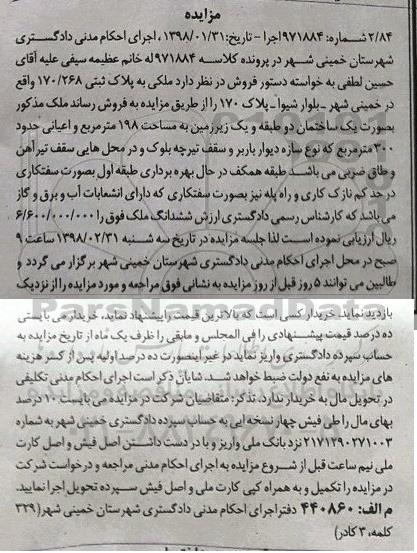 مزایده
۲/۸۴ شماره: ۹۷۱۸۸۴اجرا - تاریخ: ۱۳۹۸/۰۱/۳۱، اجرای احکام مدنی دادگستری
شهرستان خمینی شهر در پرونده کلاسه ۹۷۱۸۸۴ له خانم عظیمه سیفی علیه آقای
حسین لطفی به خواسته دستور فروش در نظر دارد ملکی به پلاک ثبتی ۱۷۰/۲۶۸ واقع
در خمینی شهر - بلوار شیوا - پلاک ۱۷۰ را از طریق مزایده به فروش رساند ملک مذکور
بصورت یک ساختمان دو طبقه و یک زیرزمین به مساحت ۱۹۸ مترمربع و اعیانی حدود
۳۰۰ مترمربع که نوع سازه دیوار باربر و سقف تیرچه بلوک و در محل هایی سقف تیرآهن
و طاق ضربی می باشد طبقه همکف در حال بهره برداری طبقه اول بصورت سفتکاری
در حد کم نازک کاری و راه پله نیز بصورت سفتکاری که دارای انشعابات آب و برق و گاز
می باشد که کارشناس رسمی دادگستری ارزش ششدانگ ملک فوق را ۶/۶۰۰/۰۰۰/۰۰۰
ریال ارزیابی نموده است لذا جلسه مزایده در تاریخ سه شنبه ۱۳۹۸/۰۲/۳۱ ساعت ۹
صبح در محل اجرای احکام مدنی دادگستری شهرستان خمینی شهر برگزار می گردد و
طالبین می توانند ۵ روز قبل از روز مزایده به نشانی فوق مراجعه و مورد مزایده را از نزدیک
بازدید نماید. خریدار کسی است که بالاترین قیمت را پیشنهاد نماید، خریدار می بایستی
ده درصد قیمت پیشنهادی را فی المجلس و مابقی را ظرف یک ماه از تاریخ مزایده به
حساب سپرده دادگستری واریز نماید در غیر اینصورت ده درصد اولیه پس از کسر هزینه
های مزایده به نفع دولت ضبط خواهد شد. شایان ذکر است اجرای احکام مدنی تکلیفی
در تحویل مال به خریدار ندارد. تذکر: متقاضیان شرکت در مزایده می بایست ۱۰ درصد
بهای مال را طی فیش چهار نسخه ایی به حساب سپرده دادگستری خمینی شهر به شماره
۲۱۷۱۲۹۰۲۷۱۰۰۳ نزد بانک ملی واریز و با در دست داشتن اصل فیش و اصل کارت
ملی نیم ساعت قبل از شروع مزایده به اجرای احکام مدنی مراجعه و درخواست شرکت
در مزایده را تکمیل و به همراه کپی کارت ملی و اصل فیش سپرده تحویل اجرا نمایید.
م الف: ۴۴۰۸۶۰ دفتر اجرای احکام مدنی دادگستری شهرستان خمینی شهر( ۳۲۹
کلمه، ۳ کادر)